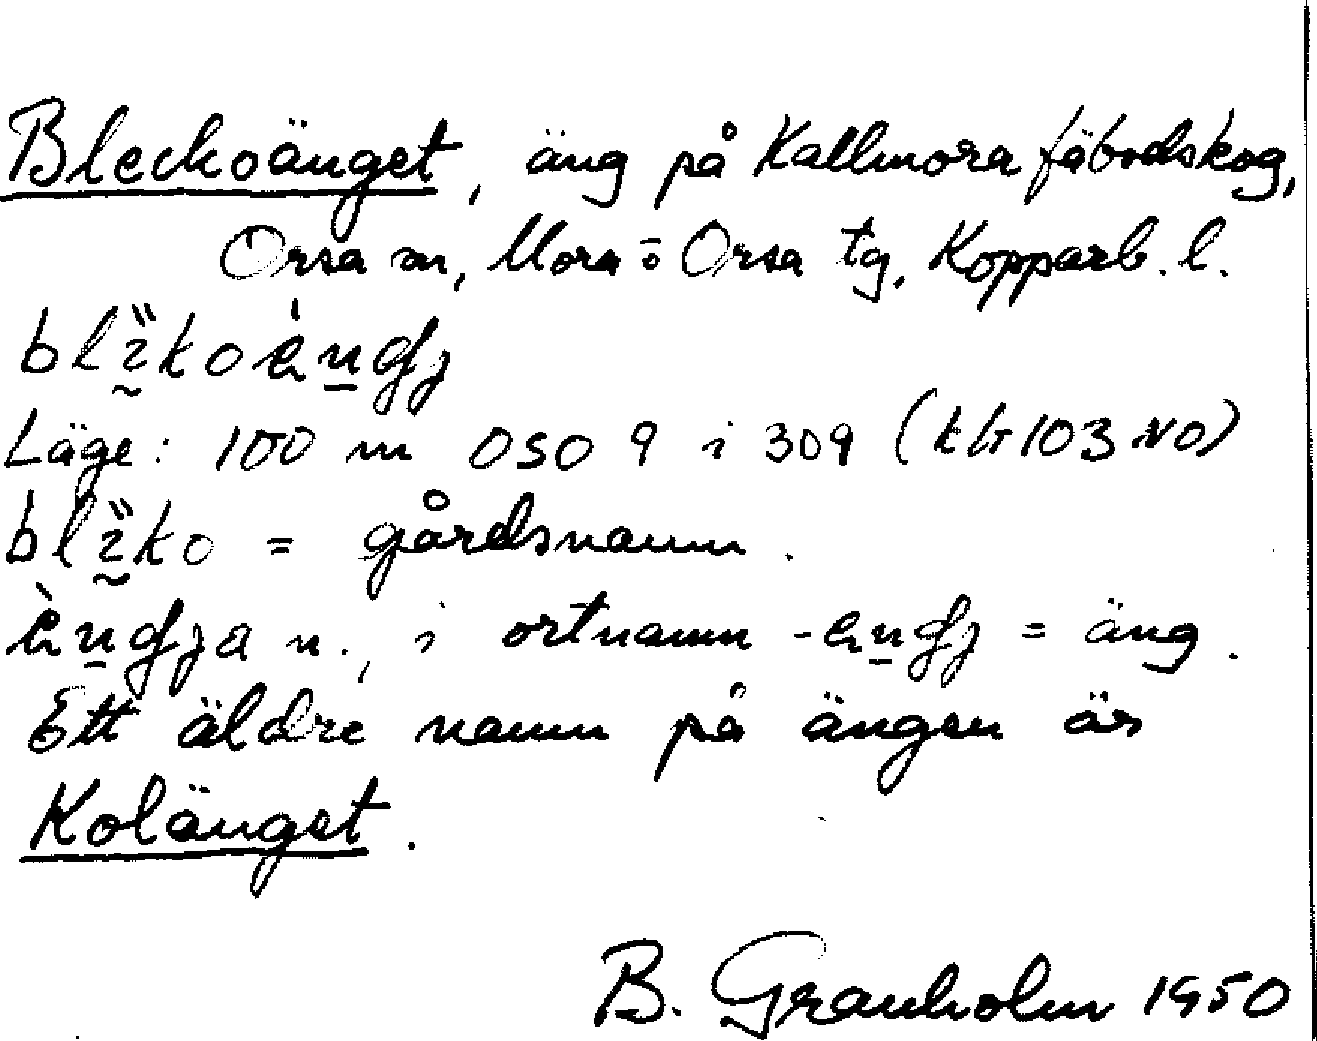 Bleckoänget, äng på Kallmora fäbodskog,
Orsa sn, Mora- o Orsa tg, Kopparb. l.
Läge: 100 m OSO 9 i 309 (kbl 103 NO)
= gårdsnamn.
n., i ortnamn = äng.
Ett äldre namn på ängen är
Kolänget.
B. Granholm 1950